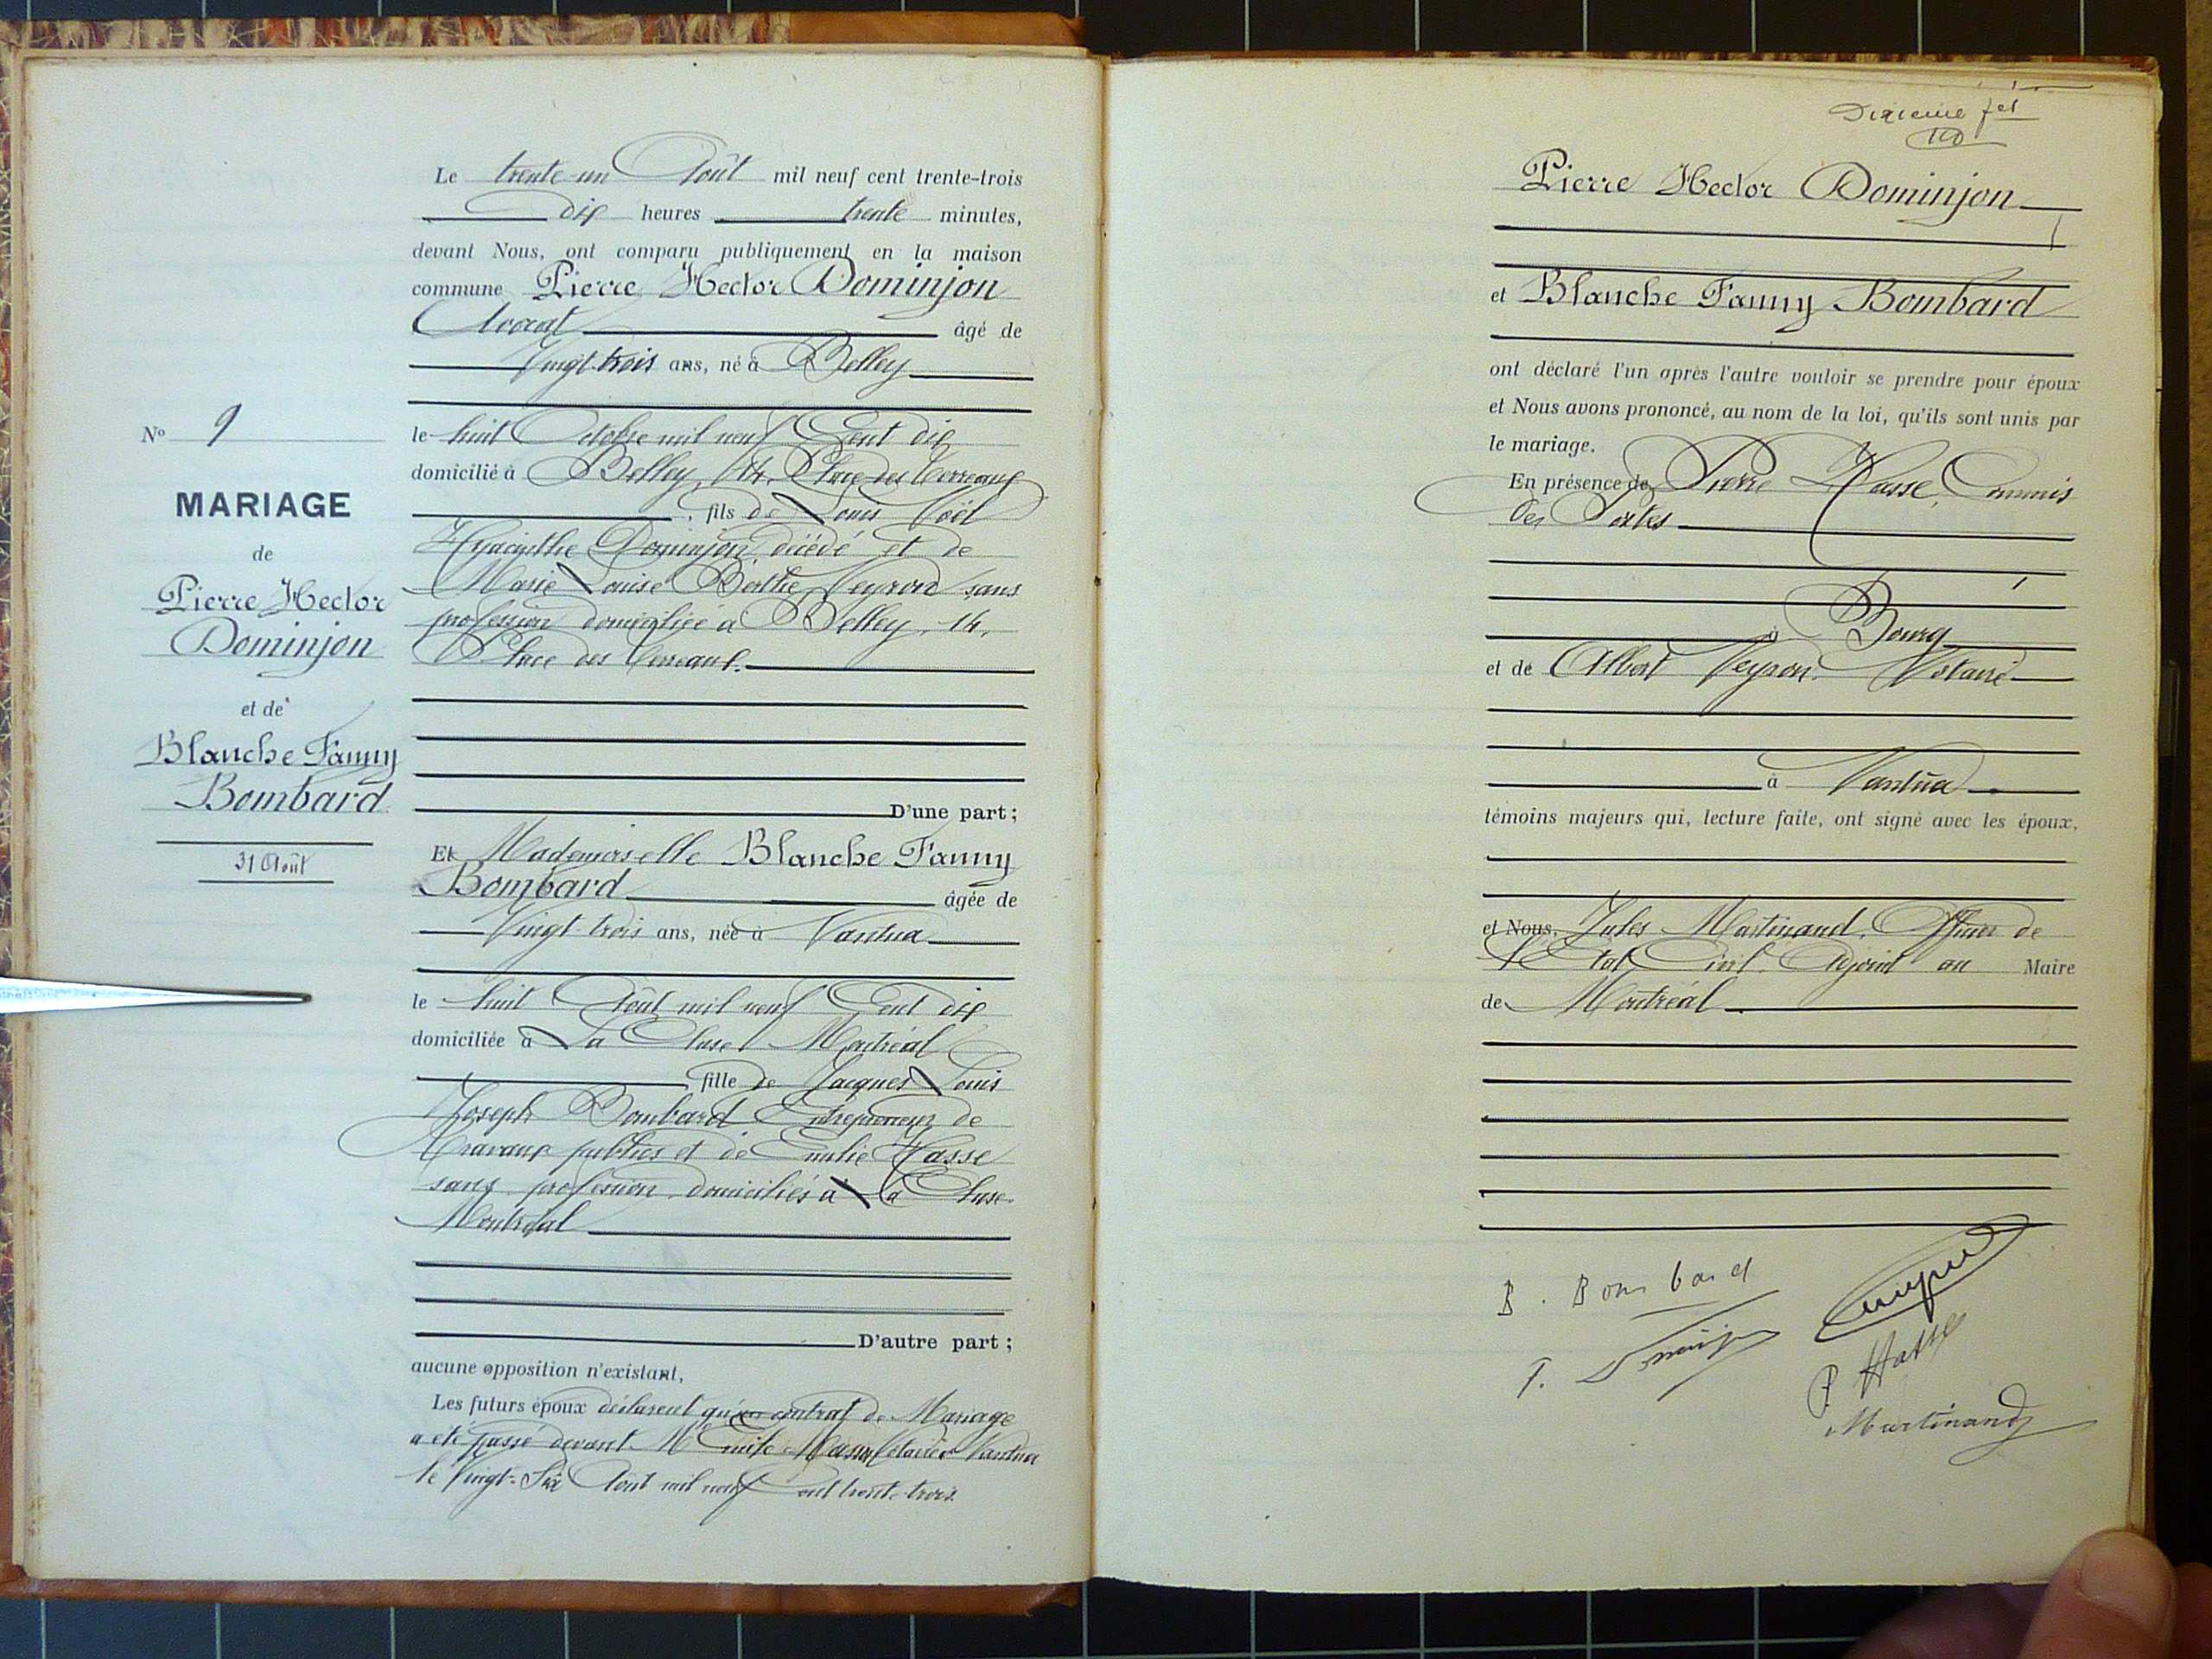 Le trente-un Août mil neuf cent trente-trois
dix heures trente minutes,
devant Nous, ont comparu publiquement en la maison
commune Pierre Hector Dominjon
Avocat âgé de
Vingt-trois ans, né à Belley
le huit Octobre mil neuf Cent dix
domicilié à Belley, 14, Place des Terreaux
, fils de Louis Noël
Hyacinthe Dominjon décédé et de
Marie Louise Berthe Veyron sans
profession domiciliée à Belley, 14,
Place des Terreaux.
D'une part;
Nº 9
MARIAGE
de
Pierre Hector
Dominjon
et de
Blanche Fanny
Bombard
31 Août
Et Mademoiselle Blanche Fanny
Bombard âgée de
Vingt-trois ans, née à Nantua
le huit Août mil neuf Cent dix
domiciliée à La Cluse Montréal
, fille de Jacques Louis
Joseph Bombard Entrepreneur de
travaux publics et de Emilie Hasse
sans profession domiciliés à La Cluse
Montréal
D'autre part;
aucune opposition n'existant,
Les futurs époux déclarent qu'un contrat de Mariage
a été passé devant Me Notaire à Nantua
le Vingt-Six Août mil neuf cent trente-trois
Dixième
Pierre Hector Dominjon
et Blanche Fanny Bombard
ont déclaré l'un après l'autre vouloir se prendre pour époux
et Nous avons prononcé, au nom de la loi, qu'ils sont unis par
le mariage.
En présence de Pierre Hasse, Commis
des Postes
à Bourg
et de Albert Veyron. Notaire
à Nantua
témoins majeurs qui, lecture faite, ont signé avec les époux,
et Nous, Jules Martinand, Officier de
l'Etat Civil. Adjoint au Maire
de Montréal
B. Bombard
P. Hasse
Martinand